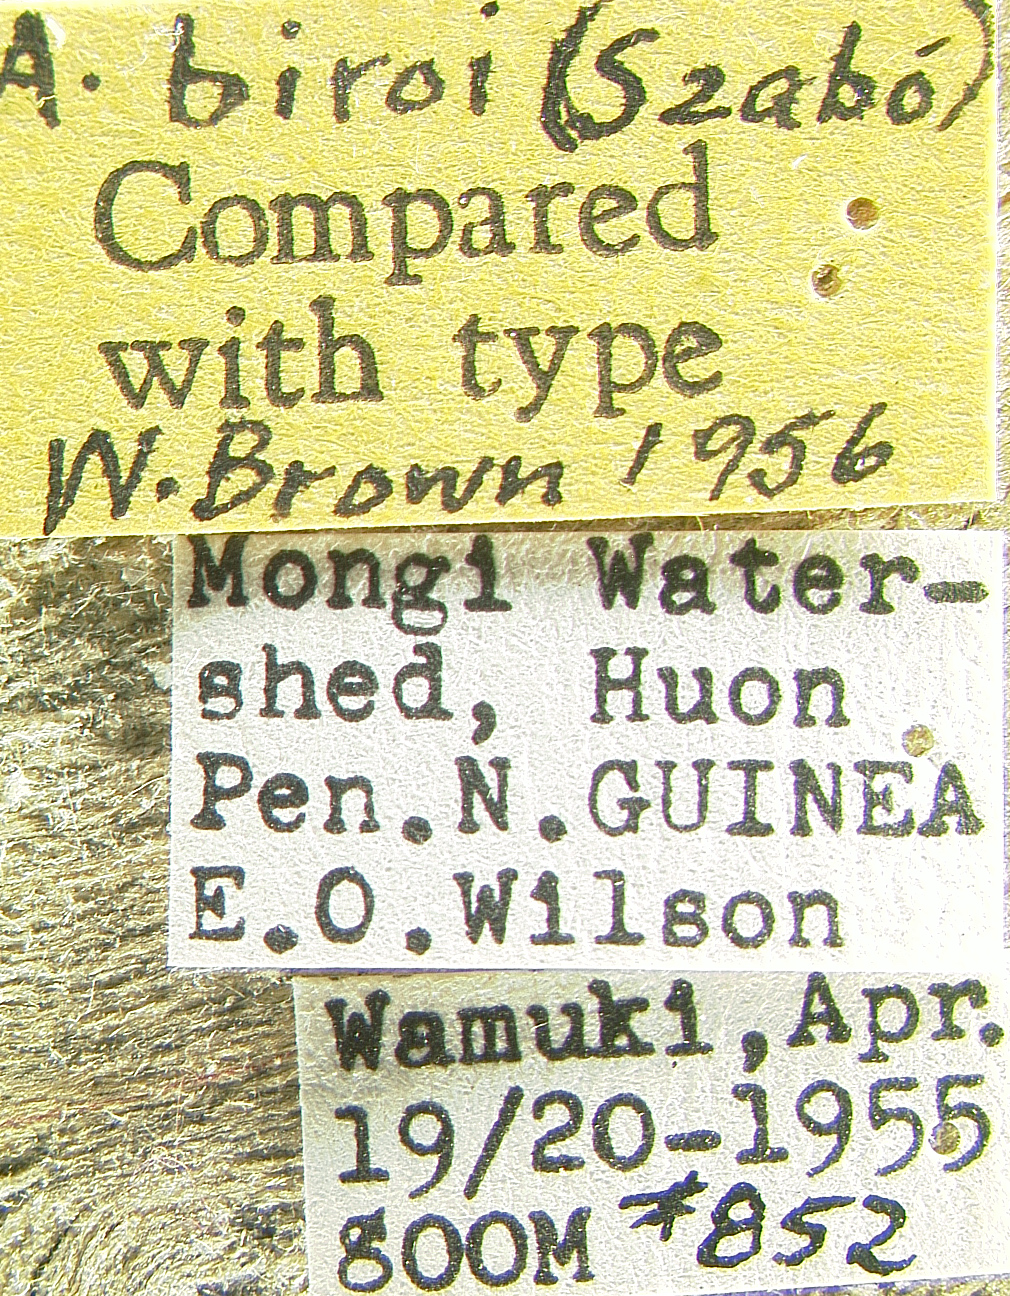 A. biroi (Szabó)
Compared
with type
W. Brown 1956
Mongi Water-
shed, Huon
Pen.N.GUINEA
E.O.Wilson
Wamuki,Apr.
19/20-1955
800M #852